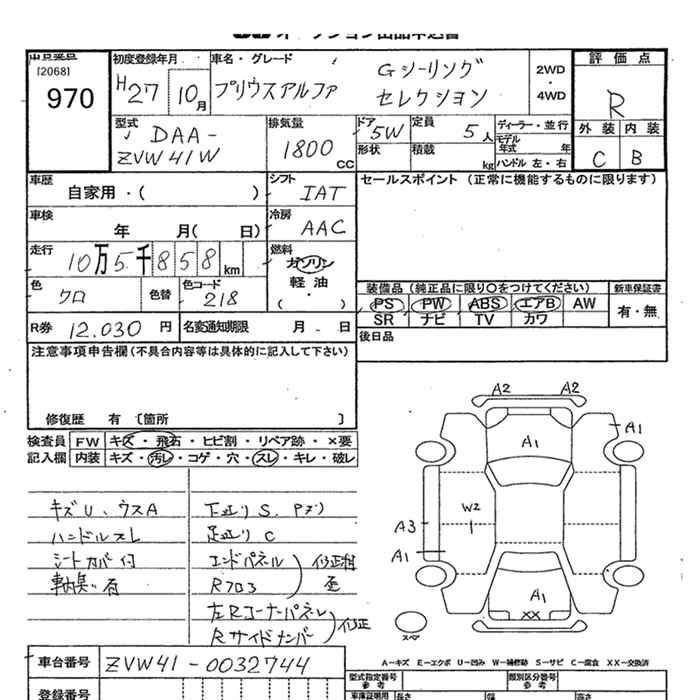 970
[2068]
初度登録年月
H27 10月
車名・グレード
プリウスアルファ
Gシーリング
セレクション
2WD
・
4WD
評価点
R
外装 内装
C B
型式
DAA-
ZVW41W
排気量
1800
CC
ドア 5W
形状
定員 5人
積載 kg
ディーラー・並行
モデル年式 年
ハンドル 左・右
車歴
自家用・( )
シフト
IAT
セールスポイント (正常に機能するものに限ります)
車検
年 月( 日)
冷房
AAC
走行
10万5千858km
燃料
ガソリン
軽油
・
( )
色
クロ
色替
色コード
218
装備品 (純正品に限り〇をつけてください)
新車保証書
PS PW ABS エアB AW
有・無
SR ナビ TV カワ
R券 12.030 円
名変通知期限 月 日
後日品
注意事項申告欄(不具合内容等は具体的に記入して下さい)
修復歴 有 〔箇所 〕
検査員
記入欄
FW キズ・飛石・ヒビ割・リペア跡・×要
内装 キズ・汚レ・コゲ・穴・スレ・キレ・破レ
キズU、ウスA
ハンドルスレ
シートカバー付
車内臭い有
下廻り S、Pズリ
足廻り C
エンドパネル
Rフロア
修正相
左Rコーナーパネル
Rサイドメンバー
修正
A2 A2
A1
A1
W2
A3
A1
A1
XX
スペア
A-キズ E-エクボ U-凹み W-補修跡 S-サビ C-腐食 XX-交換済
車台番号 ZVW41-0032744
登録番号
型式指定番号
参考
類別区分番号
参考
車庫証明用
長さ
幅
高さ